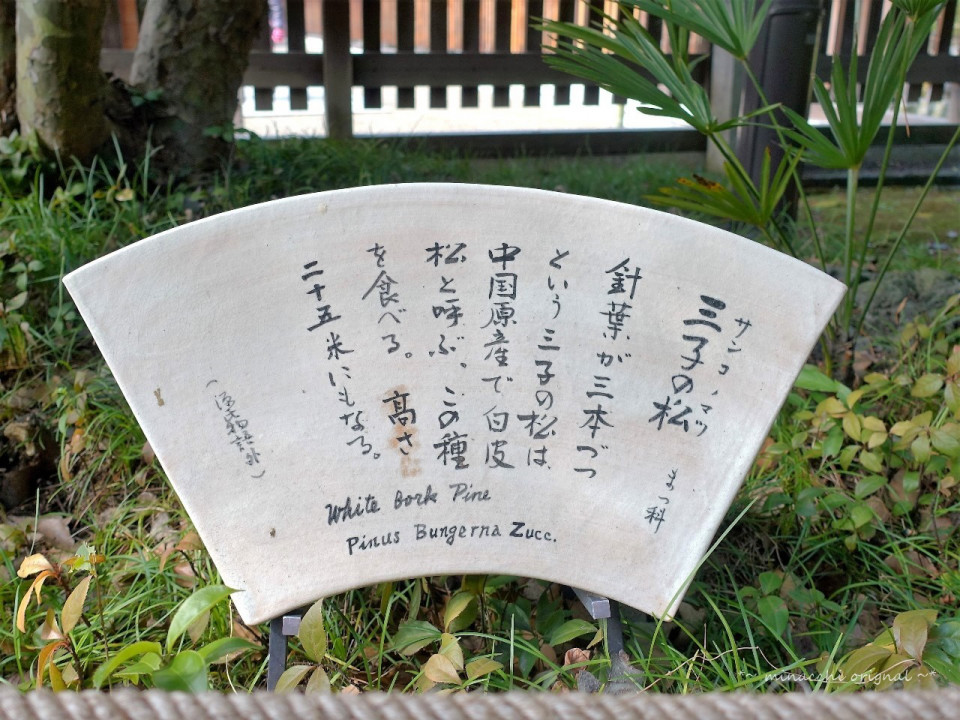 サンコノマツ
三子の松
まつ科
針葉が三本づつ
という三子の松は
中国原産で白皮
松と呼ぶ。この種
を食べる。高さ
二十五米にもなる。
(源氏物語外)
White Bark Pine
Pinus Bungerna Zucc.
~* minacono orignal ~*